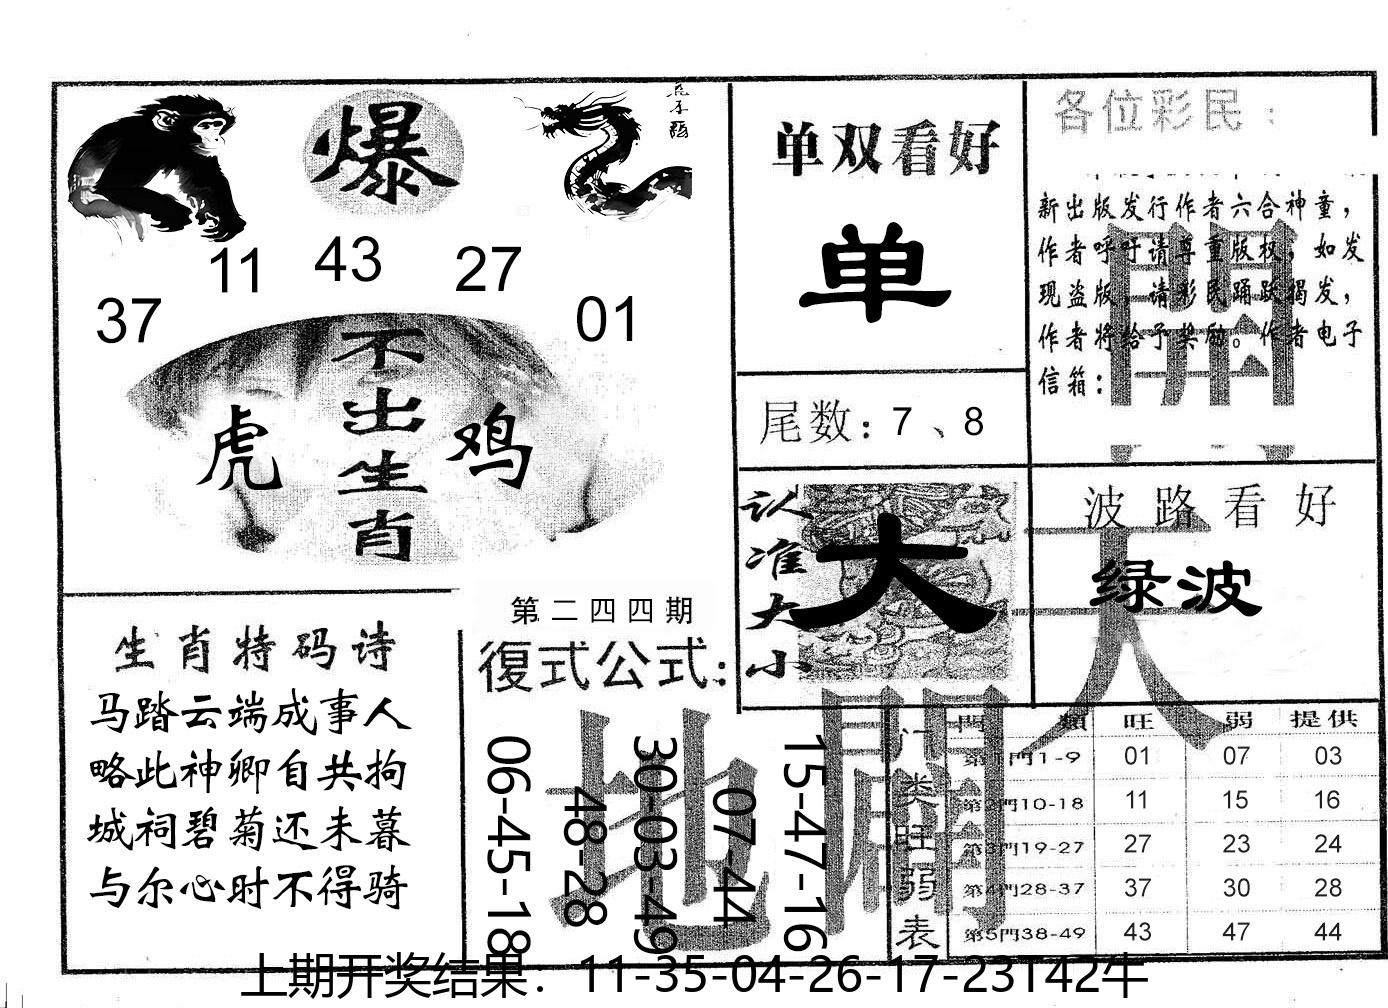 爆
11 43 27
37 01
不出生肖
虎 鸡
生肖特码诗
马踏云端成事人
略此神卿自共拘
城祠碧菊还未暮
与尔心时不得骑
第二四四期
復式公式：
06-45-18
48-28
30-03-49
07-44
15-47-16
单双看好
单
尾数：7、8
认准大小
大
各位彩民：
新出版发行作者六合神童，
作者呼吁请尊重版权，如发
现盗版，请彩民踊跃揭发，
作者将给予奖励。作者电子
信箱：
波路看好
绿波
天開
地闢
门类旺弱表
門類 旺 弱 提供
第1門1-9 01 07 03
第2門10-18 11 15 16
第3門19-27 27 23 24
第4門28-37 37 30 28
第5門38-49 43 47 44
上期开奖结果：11-35-04-26-17-23T42牛